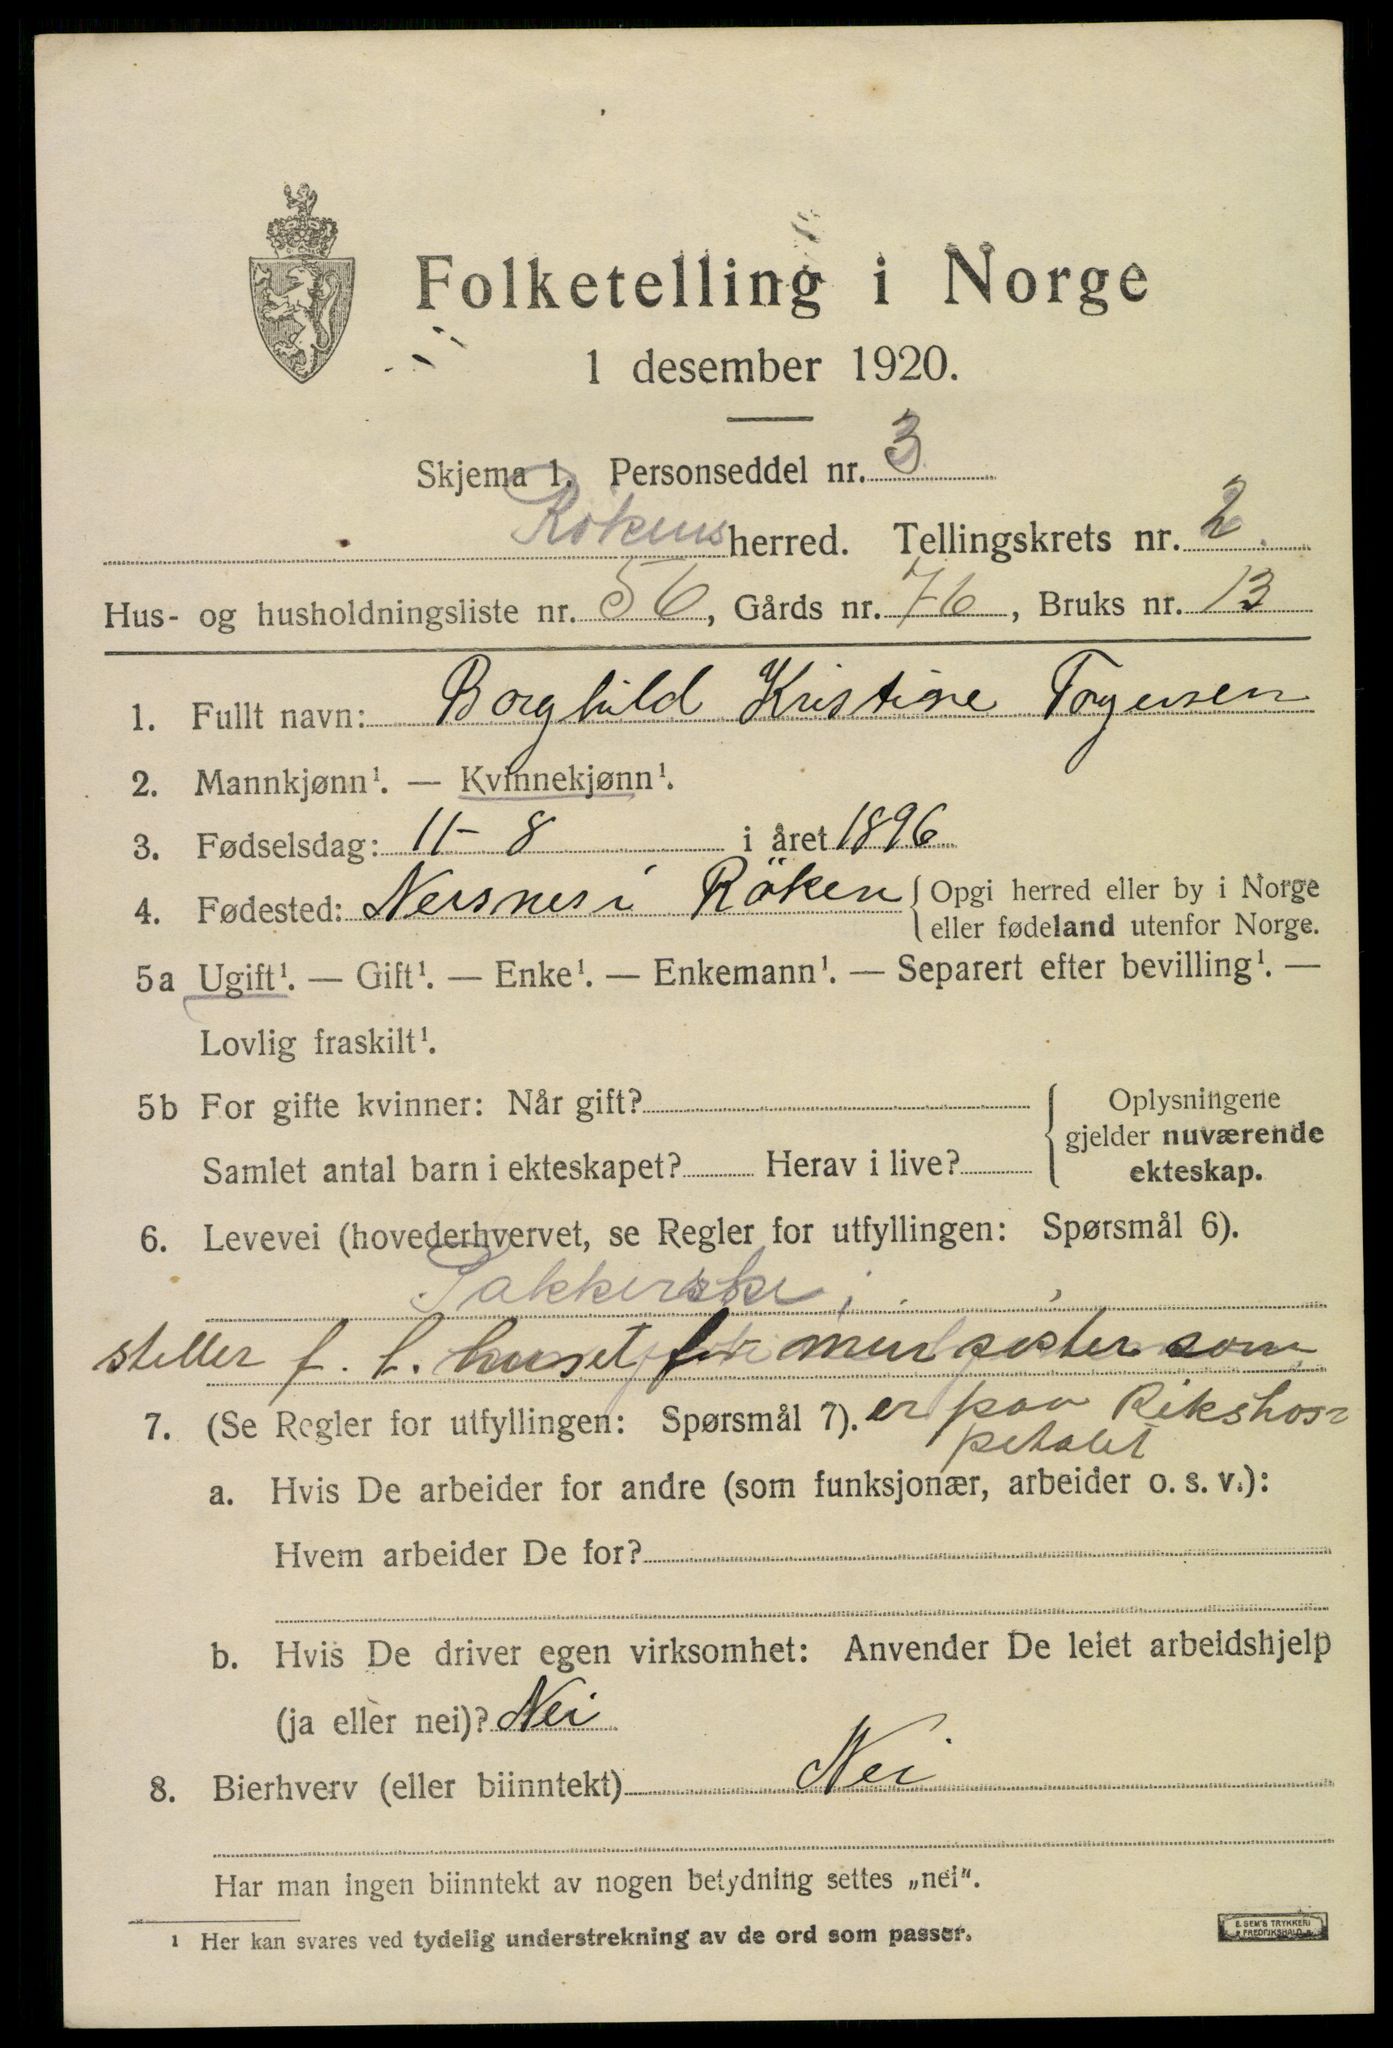 Folketelling i Norge
1 desember 1920.
Skjema 1. Personseddel nr. 3
Rökens herred. Tellingskrets nr. 2.
Hus- og husholdningsliste nr. 56, Gårds nr. 76, Bruks nr. 13
1. Fullt navn: Borghild Kristine Torgersen
2. Mannkjønn¹. — Kvinnekjønn¹.
3. Fødselsdag: 11-8 i året 1896
4. Fødested: Nersnes i Röken { Opgi herred eller by i Norge
eller fødeland utenfor Norge.
5a Ugift¹. — Gift¹. — Enke¹. — Enkemann¹. — Separert efter bevilling¹. —
Lovlig fraskilt¹.
5b For gifte kvinner: Når gift? { Oplysningene
gjelder nuværende
Samlet antal barn i ekteskapet? Herav i live? ekteskap.
6. Levevei (hovederhvervet, se Regler for utfyllingen: Spørsmål 6).
Pakkerske
steller f. t. huset for min søster som
7. (Se Regler for utfyllingen: Spørsmål 7). er paa Rikshos=
petalet
a. Hvis De arbeider for andre (som funksjonær, arbeider o. s. v.):
Hvem arbeider De for?
b. Hvis De driver egen virksomhet: Anvender De leiet arbeidshjelp
(ja eller nei)? Nei
8. Bierhverv (eller biinntekt) Nei
Har man ingen biinntekt av nogen betydning settes „nei“.
¹ Her kan svares ved tydelig understrekning av de ord som passer.
E. SEM'S TRYKKERI
FREDRIKSHALD